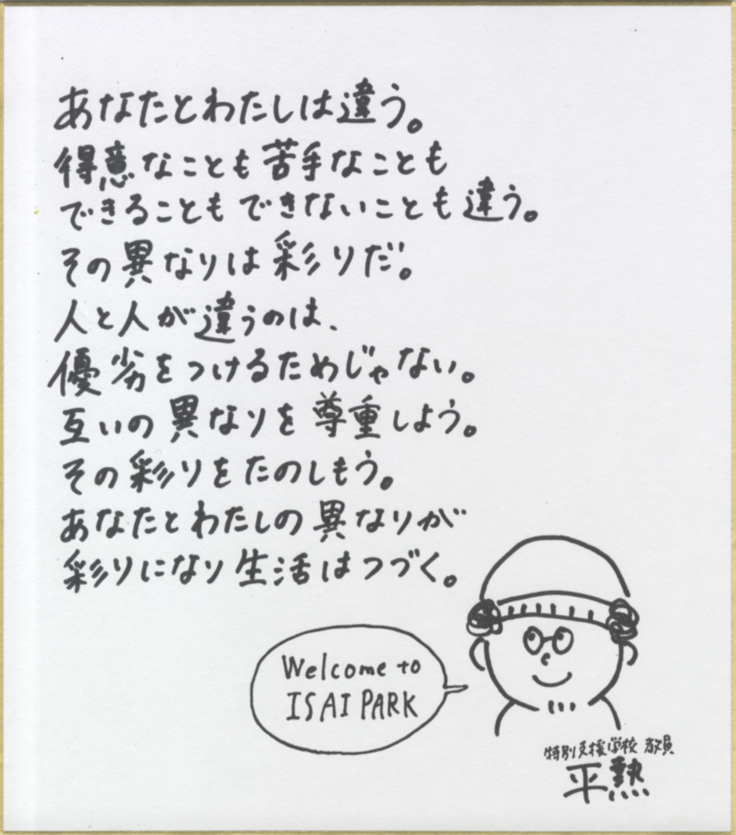 あなたとわたしは違う。
得意なことも苦手なことも
できることもできないことも違う。
その異なりは彩りだ。
人と人が違うのは、
優劣をつけるためじゃない。
互いの異なりを尊重しよう。
その彩りをたのしもう。
あなたとわたしの異なりが
彩りになり生活はつづく。
Welcome to
ISAI PARK
特別支援学校 教員
平熱